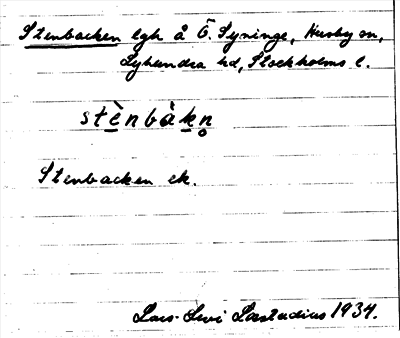 Stenbacken lgh å Ö. Syninge, Husby sn,
Lyhundra hd, Stockholms l.
stènbàkn̥
Stenbacken ek.
Lars-Levi Læstadius 1934.